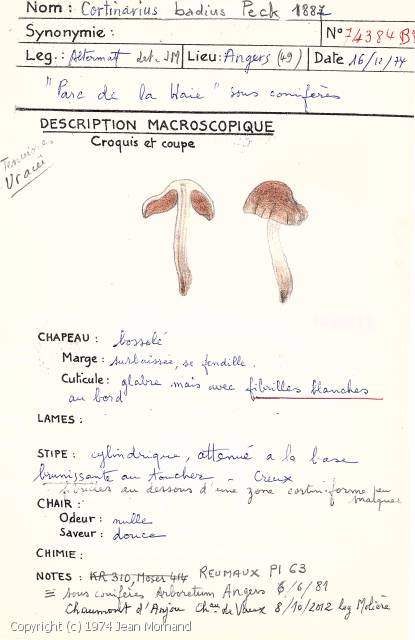 Nom : Cortinarius badius Peck 1887
Synonymie :
N° 74384 B
Leg. : Altermat det. JM Lieu : Angers (49) Date 16/11/74
"Parc de la Haie" sous conifères
DESCRIPTION MACROSCOPIQUE
Croquis et coupe
Uracei
CHAPEAU : bosselé
Marge : surbaissée, se fendille.
Cuticule : glabre mais avec fibrilles blanches
au bord
LAMES :
STIPE : cylindrique, attenué a la base
brunissante au toucher Creux
au dessous d'une zone cortiniforme peu
marquée
CHAIR :
Odeur : nulle
Saveur : douce
CHIMIE :
NOTES : KR 310, Moser 414 REUMAUX Pl 63
≡ sous conifères Arboretum Angers 6/6/81
Chaumont d'Anjou Chau de Vaux 8/10/2012 leg Molière
Copyright (c) 1974 Jean Mornand